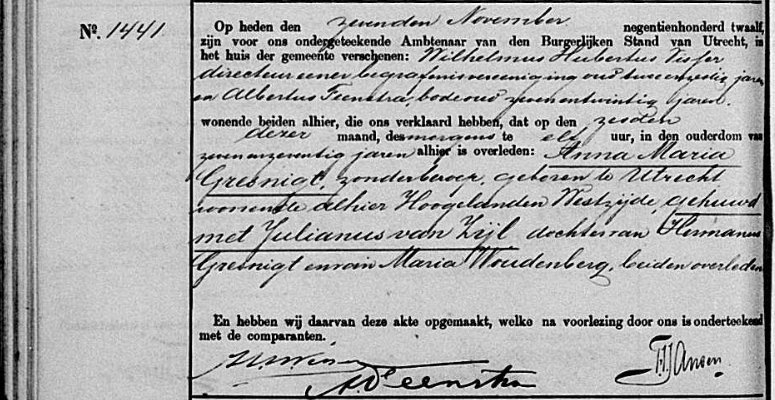 Nº. 1441
Op heden den zevenden November negentienhonderd twaalf,
zijn voor ons ondergeteekende Ambtenaar van den Burgerlijken Stand van Utrecht, in
het huis der gemeente verschenen: Wilhelmus Hubertus Visser
directeur eener begrafenisvereeniging oud twee en zestig jaren
en Albertus Feenstra, bode oud zevenentwintig jaren.
wonende beiden alhier, die ons verklaard hebben, dat op den zesden
dezer maand, des morgens te elf uur, in den ouderdom van
zevenenzeventig jaren alhier is overleden: Anna Maria
Gresnigt, zonder beroep, geboren te Utrecht
wonende alhier Hoogelanden Westzijde, gehuwd
met Julianus van Zijl dochter van Hermanus
Gresnigt en van Maria Woudenberg, beiden overleden
En hebben wij daarvan deze akte opgemaakt, welke na voorlezing door ons is onderteekend
met de comparanten.
A. Feenstra
Jansen